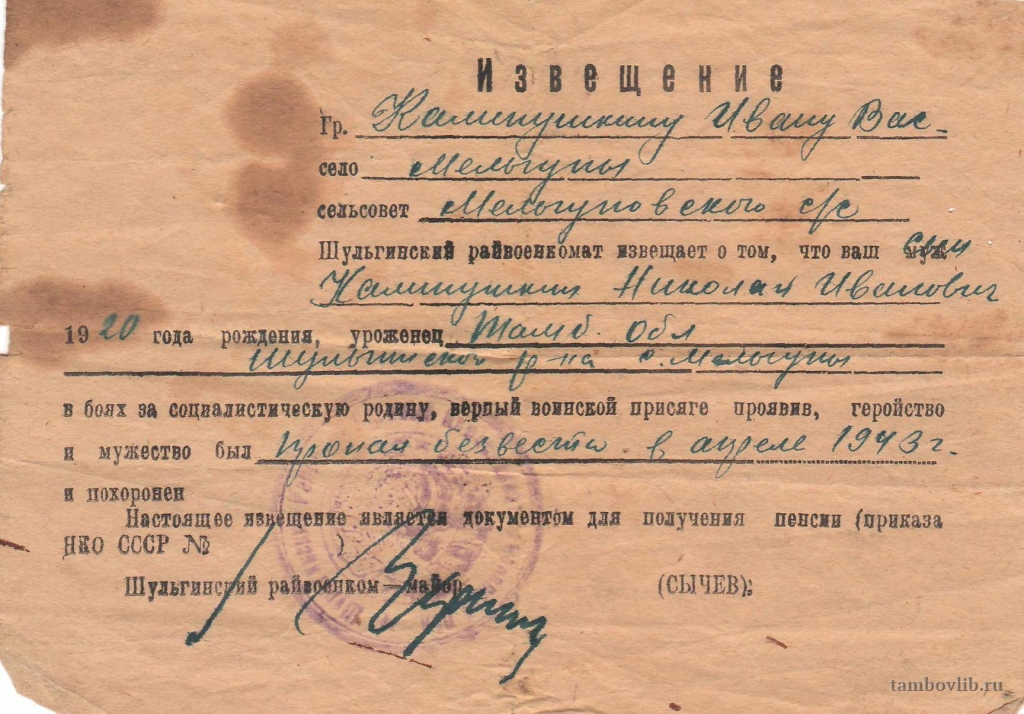 Извещение
Гр. Калинушкину Ивану Вас.
село Мельгуны
сельсовет Мельгуновского с/с
Шульгинский райвоенкомат извещает о том, что ваш муж сын
Калинушкин Николай Иванович
1920 года рождения, уроженец Тамб. Обл
Шульгинского р-на с. Мельгуны
в боях за социалистическую родину, верный воинской присяге проявив, геройство
и мужество был пропал безвести в апреле 1943 г.
и похоронен
Настоящее извещение является документом для получения пенсии (приказа
НКО СССР № )
Шульгинский райвоенком—майор (СЫЧЕВ);
tambovlib.ru